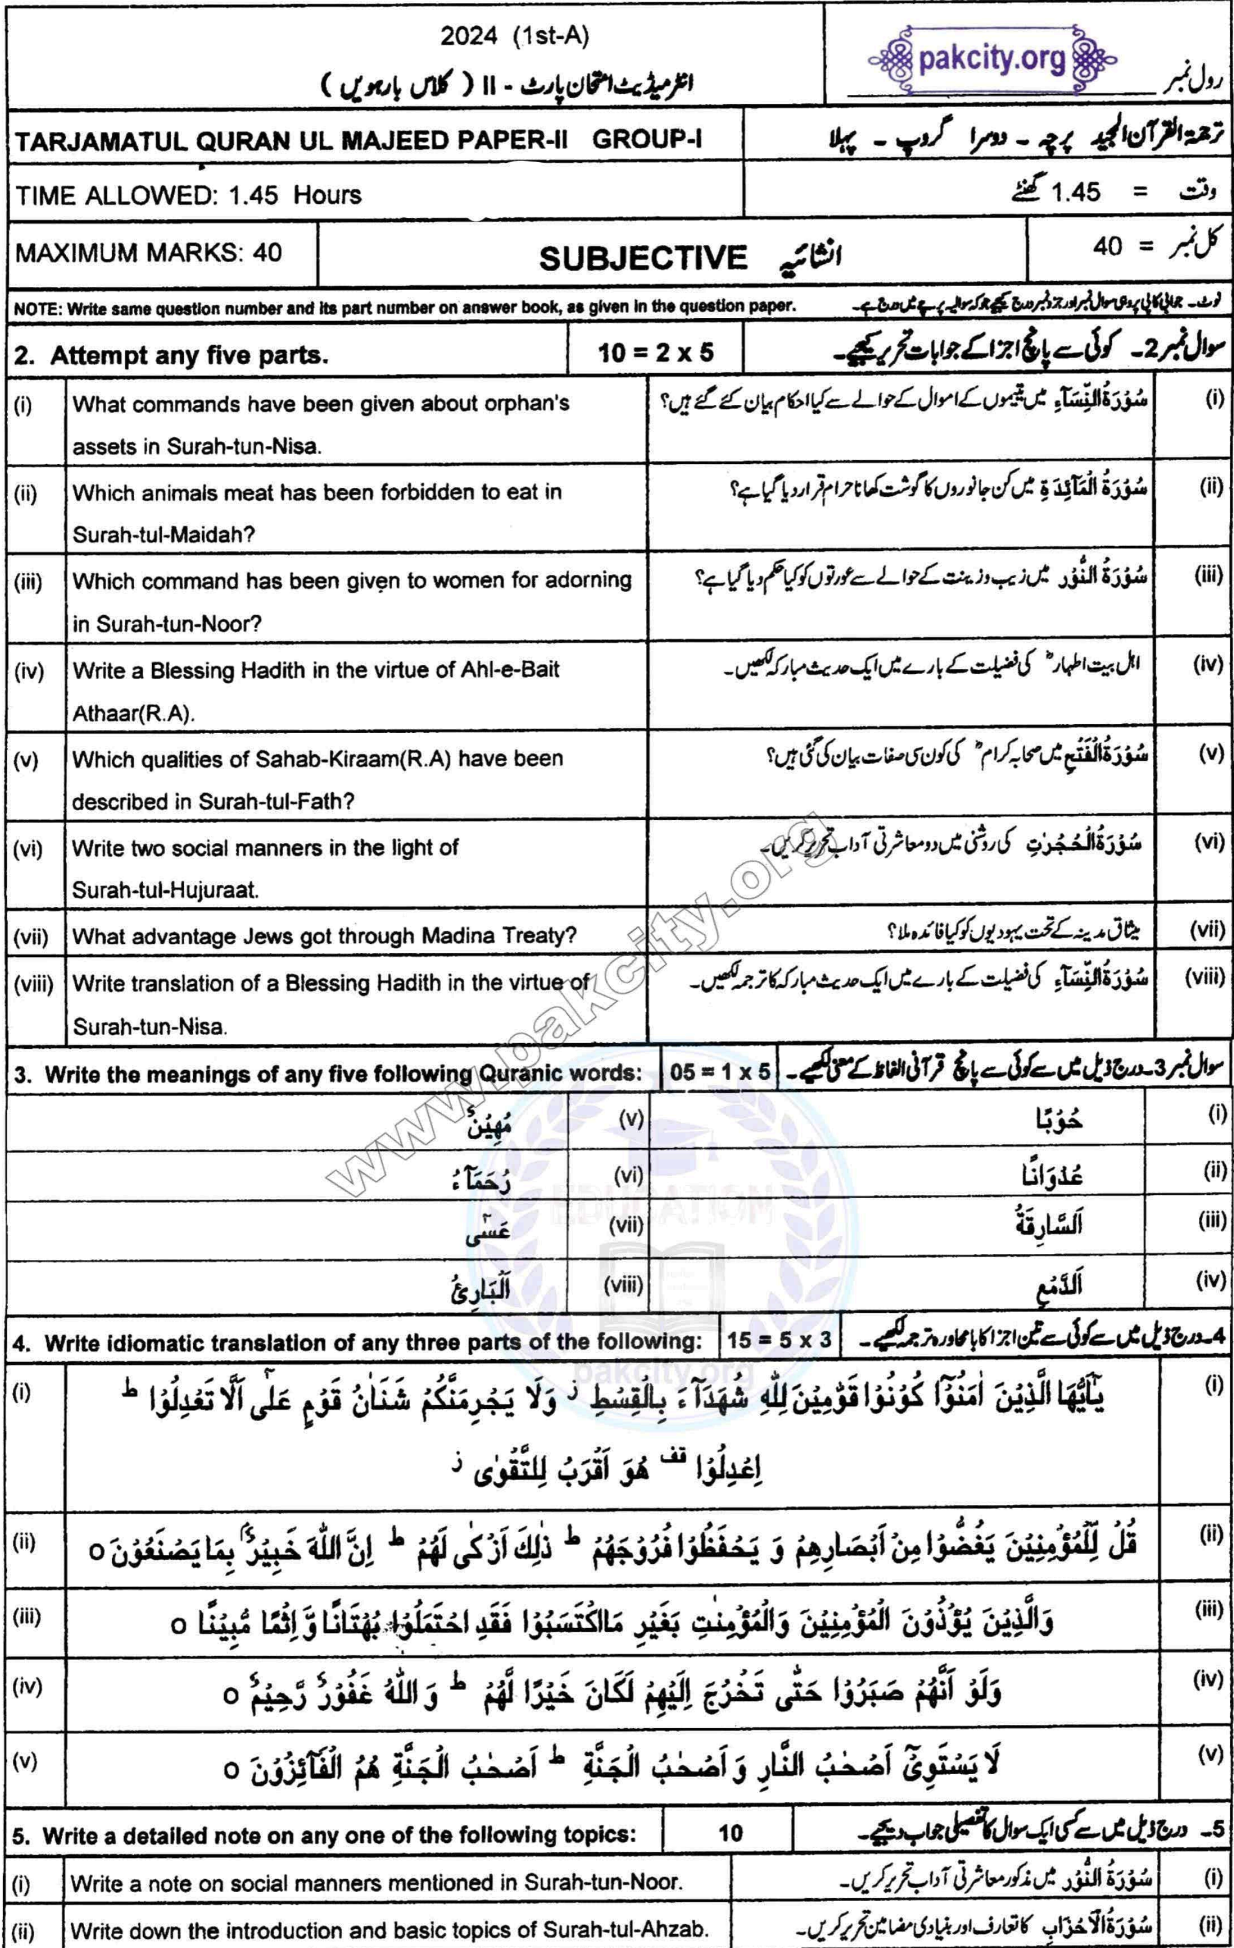 2024 (1st-A)
انٹرمیڈیٹ امتحان پارٹ - II ( کلاس بارہویں )
pakcity.org
رول نمبر
TARJAMATUL QURAN UL MAJEED PAPER-II GROUP-I
ترجمۃ القرآن المجید پرچہ - دوسرا گروپ - پہلا
TIME ALLOWED: 1.45 Hours
وقت = 1.45 گھنٹے
MAXIMUM MARKS: 40
SUBJECTIVE انشائیہ
کل نمبر = 40
NOTE: Write same question number and its part number on answer book, as given in the question paper.
نوٹ۔ جوابی کاپی پر وہی سوال نمبر اور جز نمبر درج کیجیے جو کہ سوالیہ پرچے میں درج ہے۔
2. Attempt any five parts.
10 = 2 x 5
سوال نمبر 2۔ کوئی سے پانچ اجزا کے جوابات تحریر کیجیے۔
(i) What commands have been given about orphan's
assets in Surah-tun-Nisa.
سُوْرَةُ النِّسَآءِ میں یتیموں کے اموال کے حوالے سے کیا احکام بیان کئے گئے ہیں؟ (i)
(ii) Which animals meat has been forbidden to eat in
Surah-tul-Maidah?
سُوْرَةُ الْمَآئِدَةِ میں کن جانوروں کا گوشت کھانا حرام قرار دیا گیا ہے؟ (ii)
(iii) Which command has been given to women for adorning
in Surah-tun-Noor?
سُوْرَةُ النُّوْر میں زیب و زینت کے حوالے سے عورتوں کو کیا حکم دیا گیا ہے؟ (iii)
(iv) Write a Blessing Hadith in the virtue of Ahl-e-Bait
Athaar(R.A).
اہل بیت اطہارؓ کی فضیلت کے بارے میں ایک حدیث مبارکہ لکھیں۔ (iv)
(v) Which qualities of Sahab-Kiraam(R.A) have been
described in Surah-tul-Fath?
سُوْرَةُ الْفَتْحِ میں صحابہ کرامؓ کی کون سی صفات بیان کی گئی ہیں؟ (v)
(vi) Write two social manners in the light of
Surah-tul-Hujuraat.
سُوْرَةُ الْحُجُرٰتِ کی روشنی میں دو معاشرتی آداب تحریر کریں۔ (vi)
(vii) What advantage Jews got through Madina Treaty?
میثاق مدینہ کے تحت یہودیوں کو کیا فائدہ ملا؟ (vii)
(viii) Write translation of a Blessing Hadith in the virtue of
Surah-tun-Nisa.
سُوْرَةُ النِّسَآءِ کی فضیلت کے بارے میں ایک حدیث مبارکہ کا ترجمہ لکھیں۔ (viii)
3. Write the meanings of any five following Quranic words:
05 = 1 x 5
سوال نمبر 3۔ درج ذیل میں سے کوئی سے پانچ قرآنی الفاظ کے معنی لکھیے۔
(i) حُوْبًا
(v) مُهِيْنٌ
(ii) عُدْوَانًا
(vi) رُحَمَآءُ
(iii) اَلسَّارِقَةُ
(vii) عَسٰٓى
(iv) اَلدَّمْعِ
(viii) اَلْبَارِئُ
4. Write idiomatic translation of any three parts of the following:
15 = 5 x 3
4۔ درج ذیل میں سے کوئی سے تین اجزا کا بامحاورہ ترجمہ لکھیے۔
(i) يٰٓاَيُّهَا الَّذِيْنَ اٰمَنُوْا كُوْنُوْا قَوّٰمِيْنَ لِلّٰهِ شُهَدَآءَ بِالْقِسْطِ ز وَلَا يَجْرِمَنَّكُمْ شَنَاٰنُ قَوْمٍ عَلٰٓى اَلَّا تَعْدِلُوْا ط (i)
اِعْدِلُوْا قف هُوَ اَقْرَبُ لِلتَّقْوٰى ز
(ii) قُلْ لِّلْمُؤْمِنِيْنَ يَغُضُّوْا مِنْ اَبْصَارِهِمْ وَ يَحْفَظُوْا فُرُوْجَهُمْ ط ذٰلِكَ اَزْكٰى لَهُمْ ط اِنَّ اللّٰهَ خَبِيْرٌۢ بِمَا يَصْنَعُوْنَ o (ii)
(iii) وَالَّذِيْنَ يُؤْذُوْنَ الْمُؤْمِنِيْنَ وَالْمُؤْمِنٰتِ بِغَيْرِ مَا اكْتَسَبُوْا فَقَدِ احْتَمَلُوْا بُهْتَانًا وَّ اِثْمًا مُّبِيْنًا o (iii)
(iv) وَلَوْ اَنَّهُمْ صَبَرُوْا حَتّٰى تَخْرُجَ اِلَيْهِمْ لَكَانَ خَيْرًا لَّهُمْ ط وَ اللّٰهُ غَفُوْرٌ رَّحِيْمٌ o (iv)
(v) لَا يَسْتَوِيْٓ اَصْحٰبُ النَّارِ وَ اَصْحٰبُ الْجَنَّةِ ط اَصْحٰبُ الْجَنَّةِ هُمُ الْفَآئِزُوْنَ o (v)
5. Write a detailed note on any one of the following topics:
10
5۔ درج ذیل میں سے کسی ایک سوال کا تفصیلی جواب دیجیے۔
(i) Write a note on social manners mentioned in Surah-tun-Noor.
سُوْرَةُ النُّوْر میں مذکور معاشرتی آداب تحریر کریں۔ (i)
(ii) Write down the introduction and basic topics of Surah-tul-Ahzab.
سُوْرَةُ الْاَحْزَابِ کا تعارف اور بنیادی مضامین تحریر کریں۔ (ii)
www.pakcity.org
EDUCATION
pakcity.org